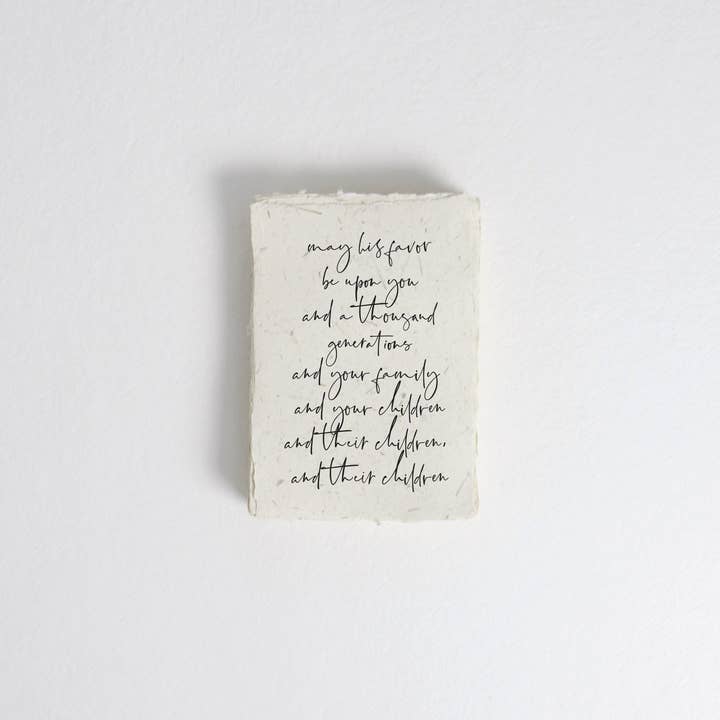 may his favor
be upon you
and a thousand
generations
and your family
and your children
and their children,
and their children